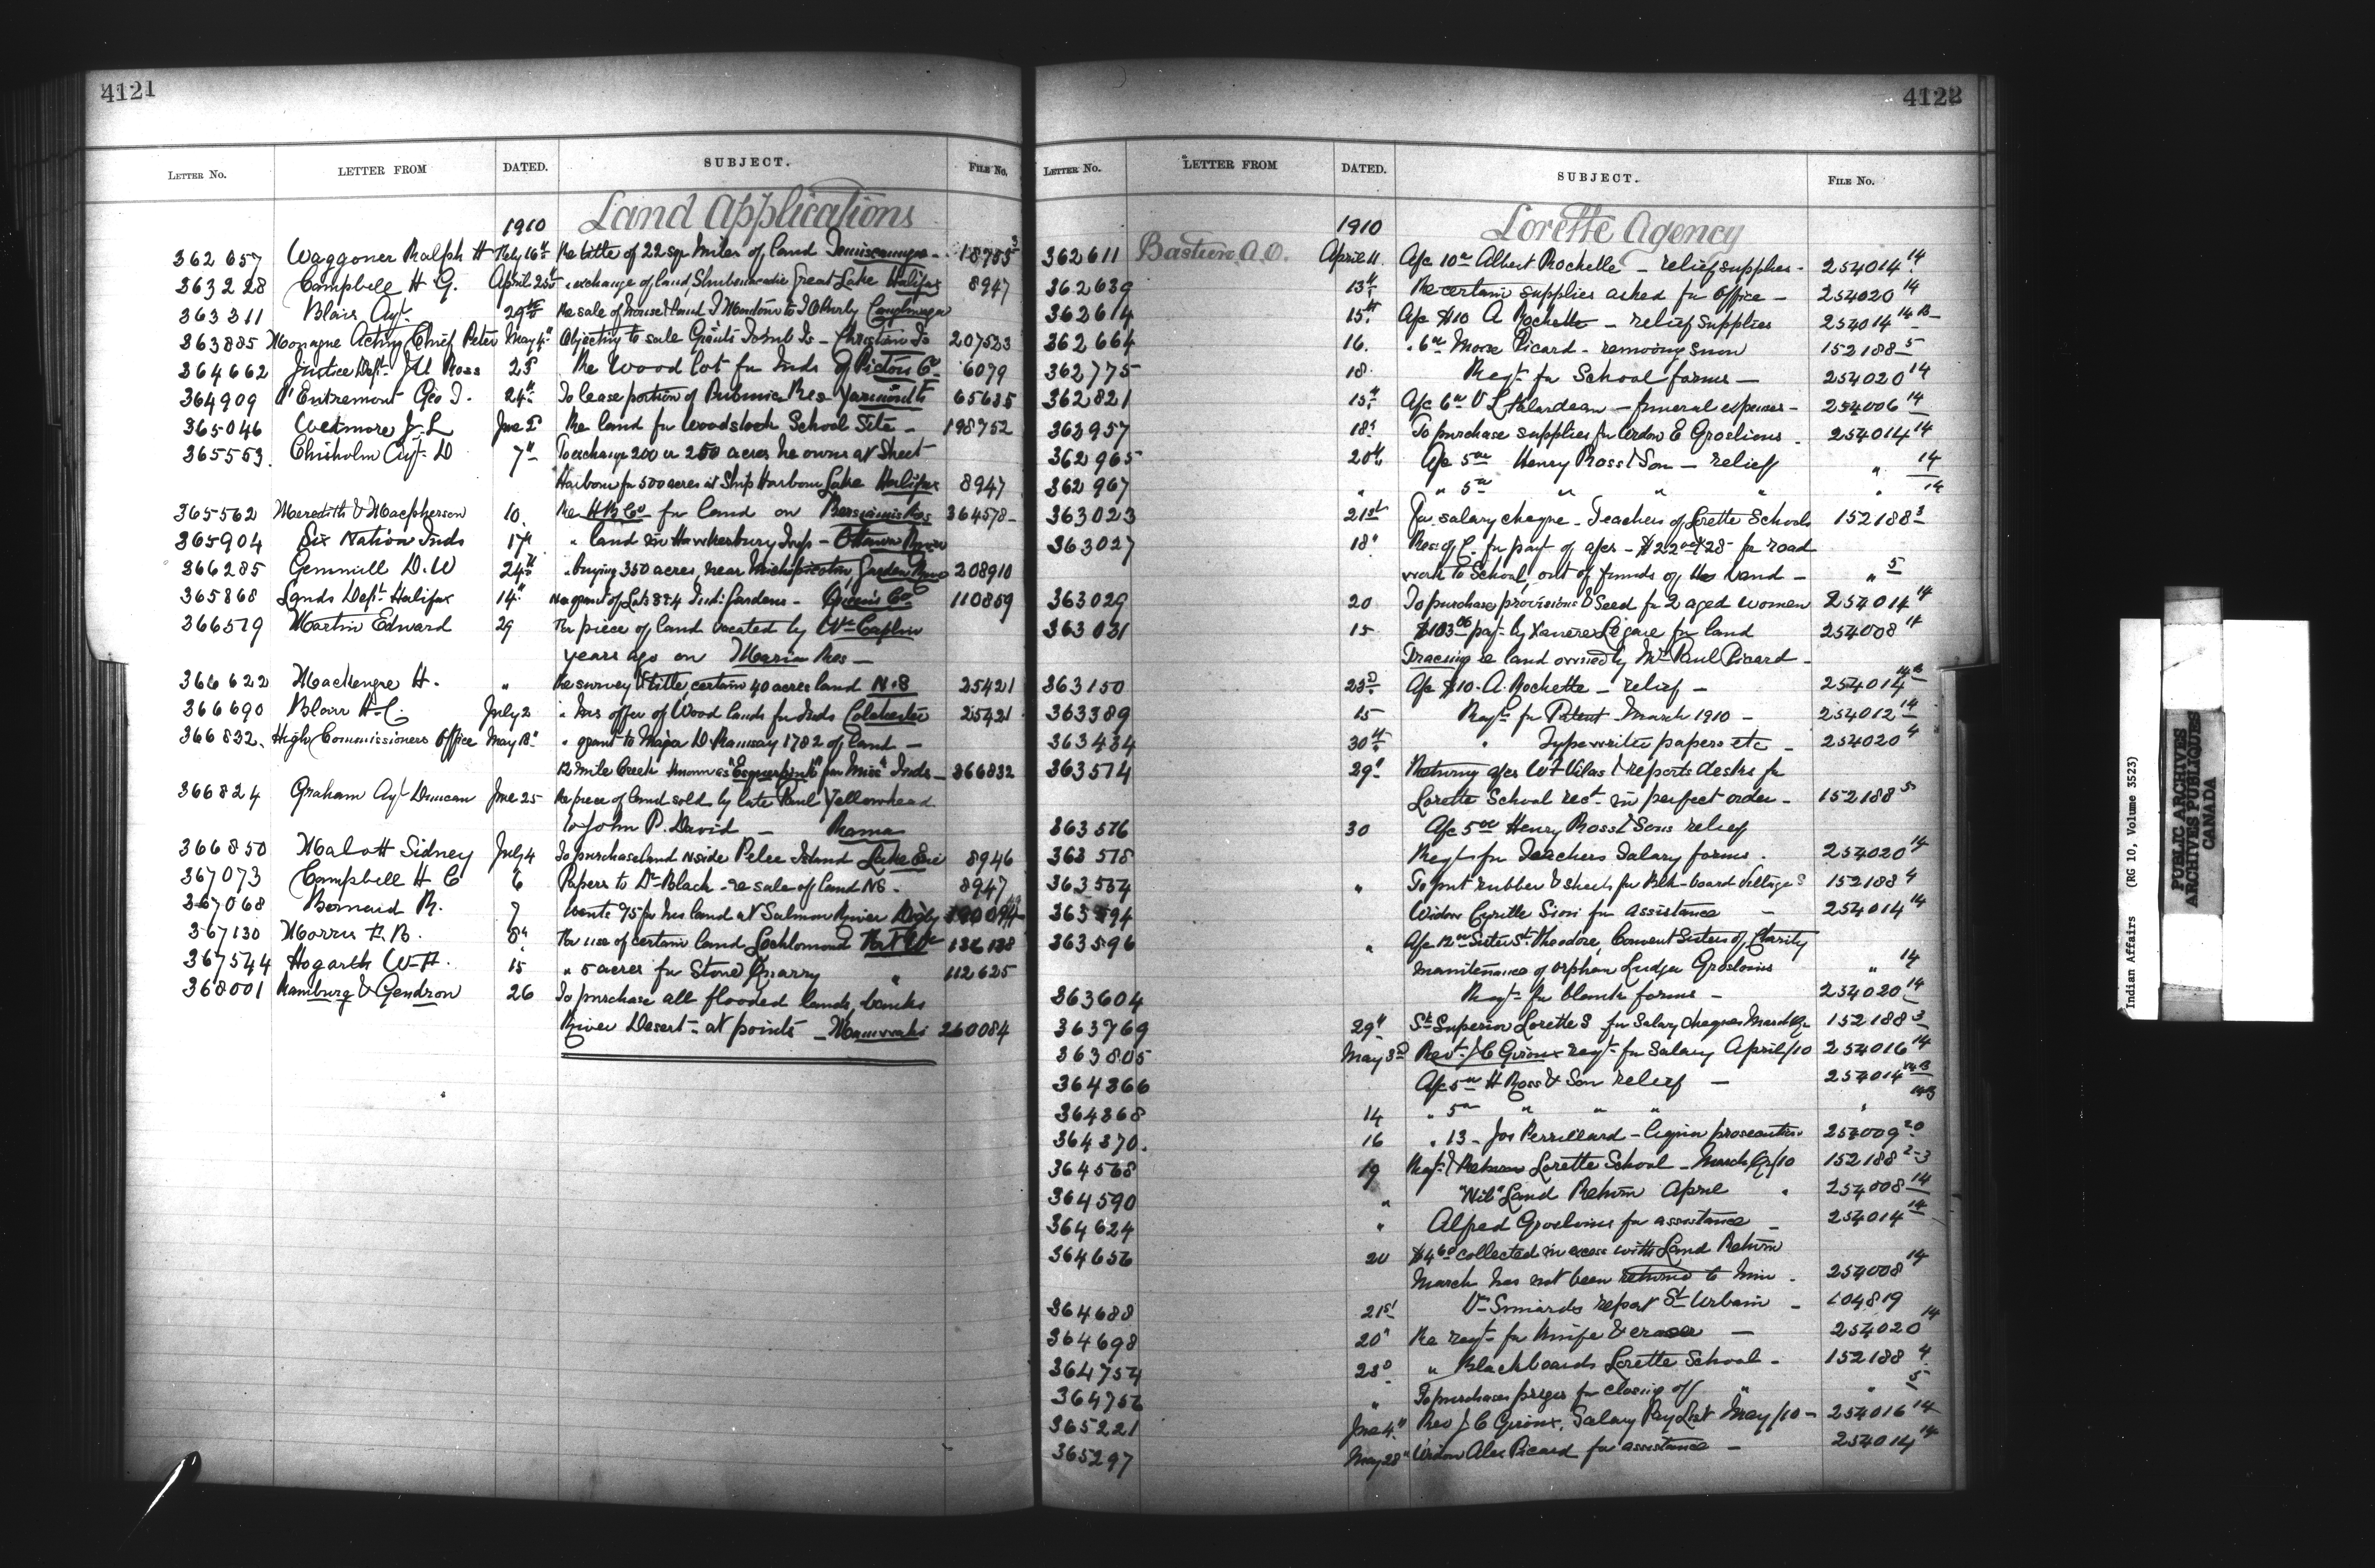 4121
LETTER NO. LETTER FROM DATED. SUBJECT. FILE NO.
1910 Land Applications
362657 Waggoner Ralph H Feby 16th Re title of 22 sqr miles of land Temiscamgue - 18785 3
363228 Campbell H G. April 25th " exchange of land Shubenacadie Great Lake Halifax 8947
363311 Blain Agt. 29th Re sale of house & land Caughnawaga
363885 Monague Acting Chief Peter May 4th Objecting to sale Giants Tomb Is - Christian Is 207523
364662 Justice Dept. Ross 25 Re Wood lot for Inds of Pictou Co. 6079
364909 D'Entremont Geo I. 24th To lease portion of Pubnico Res Yarmouth 65635
365046 Wetmore J. L June 2 Re land for Woodstock School Site - 198752
365553 Chisholm Agt. D 7th To exchange 200 or 250 acres he owns at Sheet
Harbour for 500 acres at Ship Harbour Lake Halifax 8947
365562 Meredith & Macpherson 10. Re H B Co for land on Bersimis Res 364578 -
365904 Six Nation Inds 17th " land in Hawkesbury Twp - Ottawa River
366285 Gemmill D. W 24th " buying 350 acres, near Michipicoten, Garden River 208910
365868 Lands Dept. Halifax 14th Re grant of Lots 8 & 4 Ind: Gardens - Queens Co 110869
366519 Martin Edward 29 For piece of land vacated by Wm Caplin
years ago on Maria Res -
366622 Mackenzie H. " Re survey & title, certain 40 acres land N.S 25421
366690 Blair H. C. July 2 " his offer of Wood lands for Inds Colchester 25421
366832. High Commissioners Office May 18th " grant to Major D Ramsay 1782 of land -
12 Mile Creek known as "Esquesink" for Miss. Inds - 366832
366824 Graham Agt Duncan June 25 Re piece of land sold by late Paul Yellowhead
to John P. David - Rama
366850 Malott Sidney July 4 To purchase land N side Pelee Island Lake Erie 8946
367073 Campbell H C 6 Papers to Dr Black - re sale of land NS. 8947
367068 Bernard R. 7 Wants 75 for his land at Salmon River Digby
367130 Morris F. B. 8th For use of certain land Lochlomond Fort Wm 136138
367544 Hogarth W. H. 15 " 5 acres for Stone Quarry " 112625
368001 Hamburg & Gendron 26 To purchase all flooded lands, banks
River Desert - at points - Maniwaki 260084
4123
LETTER NO. LETTER FROM DATED. SUBJECT. FILE NO.
1910 Lorette Agency
362611 Bastien A. O. April 11. A/c 10 00 Albert Rochette - relief supplies - 254014 14
362639 13th Re certain supplies asked for office - 254020 14
362614 15th A/c $10 A Rochette - relief supplies 254014 14 B -
362664 16. " 6 00 Moise Picard - removing snow 152188 5
362775 18. Reqt. for School forms - 254020 14
362821 15th A/c 6 00 V L Falardeau - funeral expenses - 254006 14
363957 18th To purchase supplies for Widow E Groslouis - 254014 14
362965 20th A/c 5 00 Henry Ross & Son - relief " 14
362967 " " 5 00 " " " " 14
363023 21st For salary cheque - Teachers of Lorette Schools 152188 3
363027 18th Res: of C. for payt of a/cs - for road
work to School, out of funds of the band - " 5
363029 20 To purchase provisions & Seed for 2 aged women 254014 14
363031 15 $103 06 payt. by Xavier Légaré for land 254008 14
Tracing re land owned by Mr Paul Picard -
363150 23rd A/c $10 - A. Rochette - relief - 254014 14 B
363389 15 Reqt. for Patent - March 1910 - 254012 14
363434 30th " Typewriter papers etc - 254020 4
363514 29th Returng a/cs W F Vilas & reports desks for
Lorette School rect. in perfect order - 152188 5
363516 30 A/c 5 00 Henry Ross & Sons relief
363518 Reqt. for Teachers Salary forms. 254020 14
363534 " To put rubber & sheets for Blk-board Village S 152188 4
363594 Widow Cyrille Sioui for assistance - 254014 14
363596 " A/c 12 00 Sister St. Theodore, Convent Sisters of Charity
maintenance of orphan Ludger Groslouis " 14
363604 Reqt. for blank forms - 254020 14
363769 29th St. Superior Lorette S for Salary cheques March Qr 152188 3
363805 May 3rd Revd. J C Giroux reqt. for Salary April/10 254016 14
364366 A/c 5 00 H Ross & Son relief - 254014 14 B
364368 14 " 5 00 " " " " 14 B
364370. 16 " 13 - Jos Perrillard - liquor prosecution. 254009 20
364568 19 Reqt. & Return Lorette School - March Qr/10 152188 2-3
364590 " "Nil" Land Return April " 254008 14
364624 " Alfred Groslouis for assistance - 254014 14
364656 20 $4 60 collected in excess with Land Return
March has not been returned to him. 254008 14
364688 21st Dr Simards report St Urbain - 104819
364698 20th Re reqt. for knife & eraser - 254020 14
364754 23rd " Blackboards Lorette School - 152188 4
364756 " To purchase prizes for closing of " " 5
365221 June 4th Rev J C Giroux, Salary Pay List May/10 - 254016 14
365297 May 28th Widow Alex Picard for assistance - 254014 14
Indian Affairs (RG 10, Volume 3523)
PUBLIC ARCHIVES
ARCHIVES PUBLIQUES
CANADA